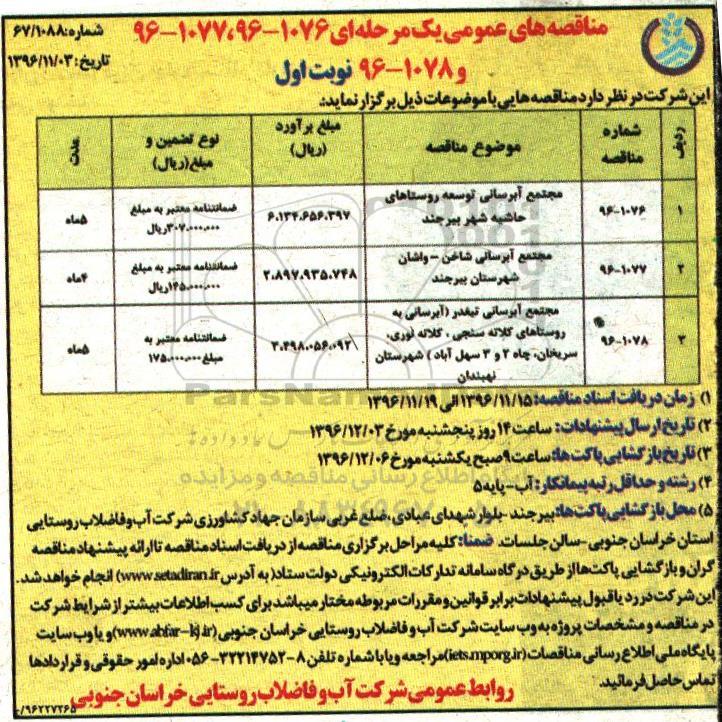 مناقصه های عمومی یک مرحله ای ۱۰۷۶-۹۶، ۱۰۷۷-۹۶
و ۱۰۷۸-۹۶ نوبت اول
شماره: ۶۷/۱۰۸۸
تاریخ: ۱۳۹۶/۱۱/۰۳
این شرکت در نظر دارد مناقصه هایی با موضوعات ذیل برگزار نماید:
ردیف شماره مناقصه موضوع مناقصه مبلغ برآورد (ریال) نوع تضمین و مبلغ(ریال) مدت
۱ ۹۶-۱۰۷۶ مجتمع آبرسانی توسعه روستاهای حاشیه شهر بیرجند ۶.۱۳۴.۶۵۶.۳۹۷ ضمانتنامه معتبر به مبلغ ۳۰۷.۰۰۰.۰۰۰ریال ۵ماه
۲ ۹۶-۱۰۷۷ مجتمع آبرسانی شاخن - واشان شهرستان بیرجند ۲.۸۹۷.۹۳۵.۷۴۸ ضمانتنامه معتبر به مبلغ ۱۴۵.۰۰۰.۰۰۰ریال ۴ماه
۳ ۹۶-۱۰۷۸ مجتمع آبرسانی تیغدر (آبرسانی به روستاهای کلاته سنجی، کلاته نوری، سریخان، چاه ۲ و ۳ سهل آباد) شهرستان نهبندان ۳.۴۹۸.۰۵۶.۰۹۲ ضمانتنامه معتبر به مبلغ ۱۷۵.۰۰۰.۰۰۰ ۵ماه
۱) زمان دریافت اسناد مناقصه: ۱۳۹۶/۱۱/۱۵ الی ۱۳۹۶/۱۱/۱۹
۲) تاریخ ارسال پیشنهادات: ساعت ۱۴ روز پنجشنبه مورخ ۱۳۹۶/۱۲/۰۳
۳) تاریخ بازگشایی پاکت ها: ساعت ۹ صبح یکشنبه مورخ ۱۳۹۶/۱۲/۰۶
۴) رشته و حداقل رتبه پیمانکار: آب - پایه ۵
۵) محل بازگشایی پاکت ها: بیرجند - بلوار شهدای عبادی - ضلع غربی سازمان جهاد کشاورزی شرکت آب و فاضلاب روستایی
استان خراسان جنوبی - سالن جلسات. ضمنا: کلیه مراحل برگزاری مناقصه از دریافت اسناد مناقصه تا ارائه پیشنهاد مناقصه
گران و بازگشایی پاکت ها از طریق درگاه سامانه تدارکات الکترونیکی دولت ستاد( به آدرس www.setadiran.ir) انجام خواهد شد.
این شرکت در رد یا قبول پیشنهادات برابر قوانین و مقررات مربوطه مختار میباشد برای کسب اطلاعات بیشتر از شرایط شرکت
در مناقصه و مشخصات پروژه به وب سایت شرکت آب و فاضلاب روستایی خراسان جنوبی (www.abfar-kj.ir) و یا وب سایت
پایگاه ملی اطلاع رسانی مناقصات (iets.mporg.ir) مراجعه و یا با شماره تلفن ۸-۳۲۲۱۴۷۵۲-۰۵۶ اداره امور حقوقی و قراردادها
تماس حاصل فرمائید.
روابط عمومی شرکت آب و فاضلاب روستایی خراسان جنوبی
۹۶۲۲۷۲۶۵/